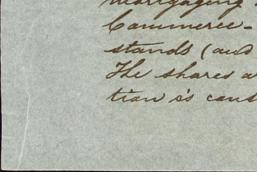 mortgaging
Commerce-
stands (and
The shares a
tion is cons